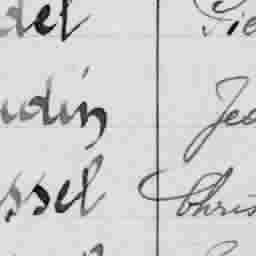 del Pie
udin Jea
ssel Chris